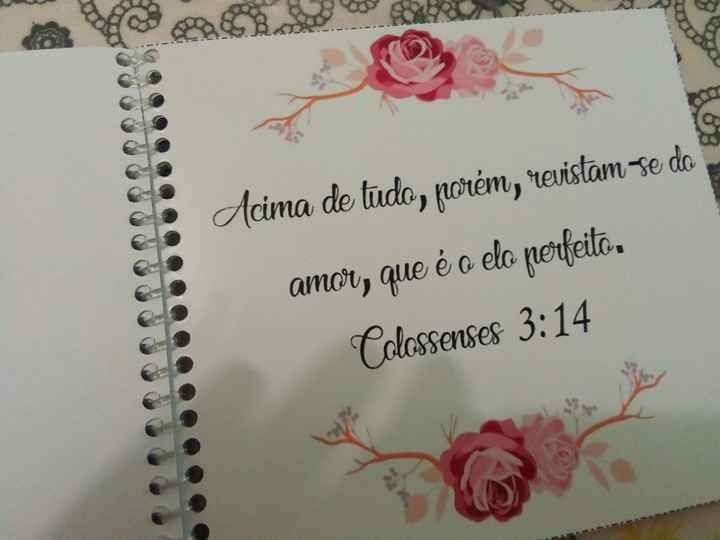 Acima de tudo, porém, revistam-se do
amor, que é o elo perfeito.
Colossenses 3:14